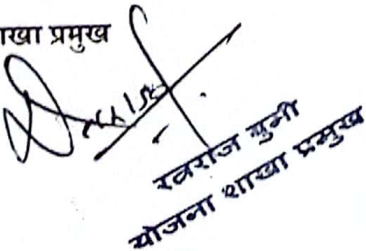 ाखा प्रमुख
रवराज चुमी
योजना शाखा प्रमुख